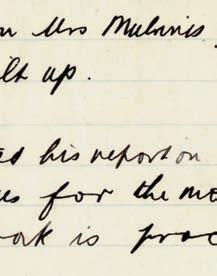 Mrs
ilt up.
ed his report on
es for the me
ork is proc